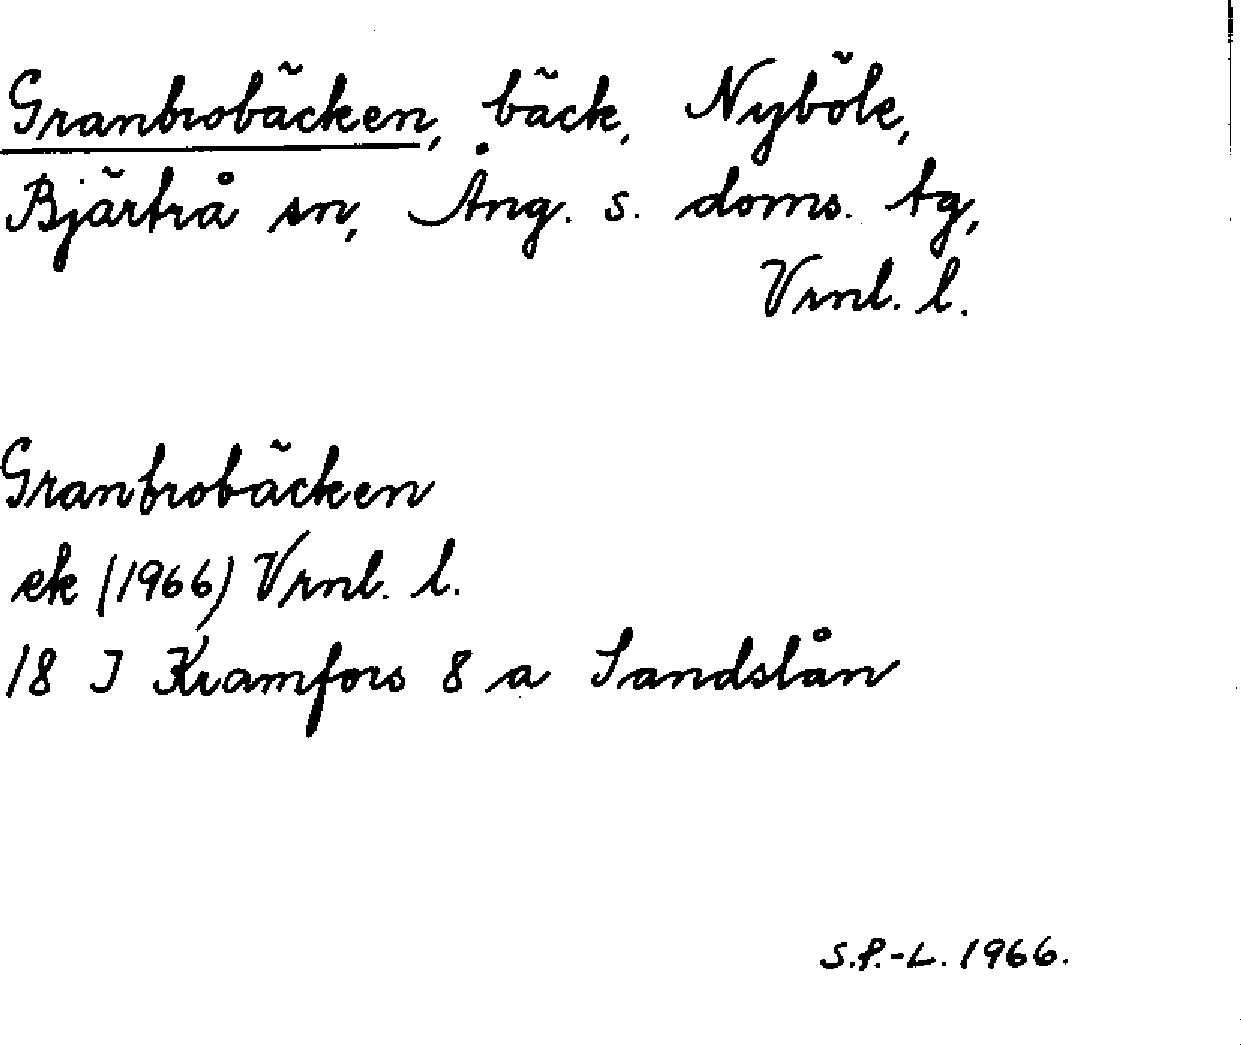 Granbrobäcken, bäck, Nyböle,
Bjärtrå sn, Ång. s. doms. tg,
Vrnl. l.
Granbrobäcken
ek (1966) Vrnl. l.
18 I Kramfors 8 a Sandslån
S.P.-L. 1966.